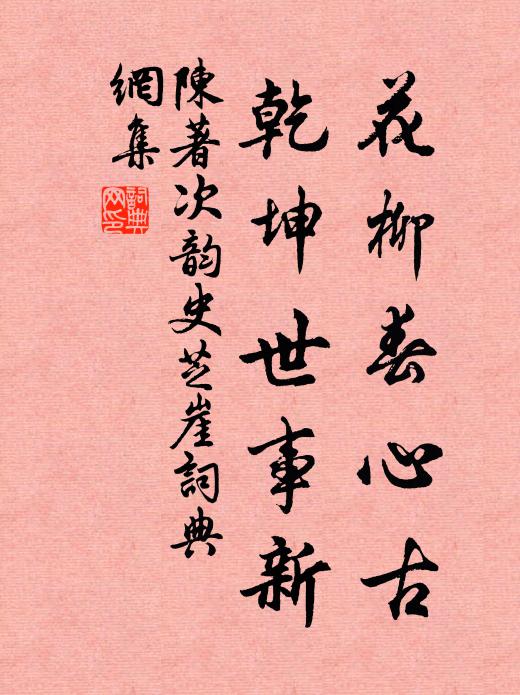 花柳春心古
乾坤世事新
陳著次韵史芝崖詞典
網集
詞典
网印